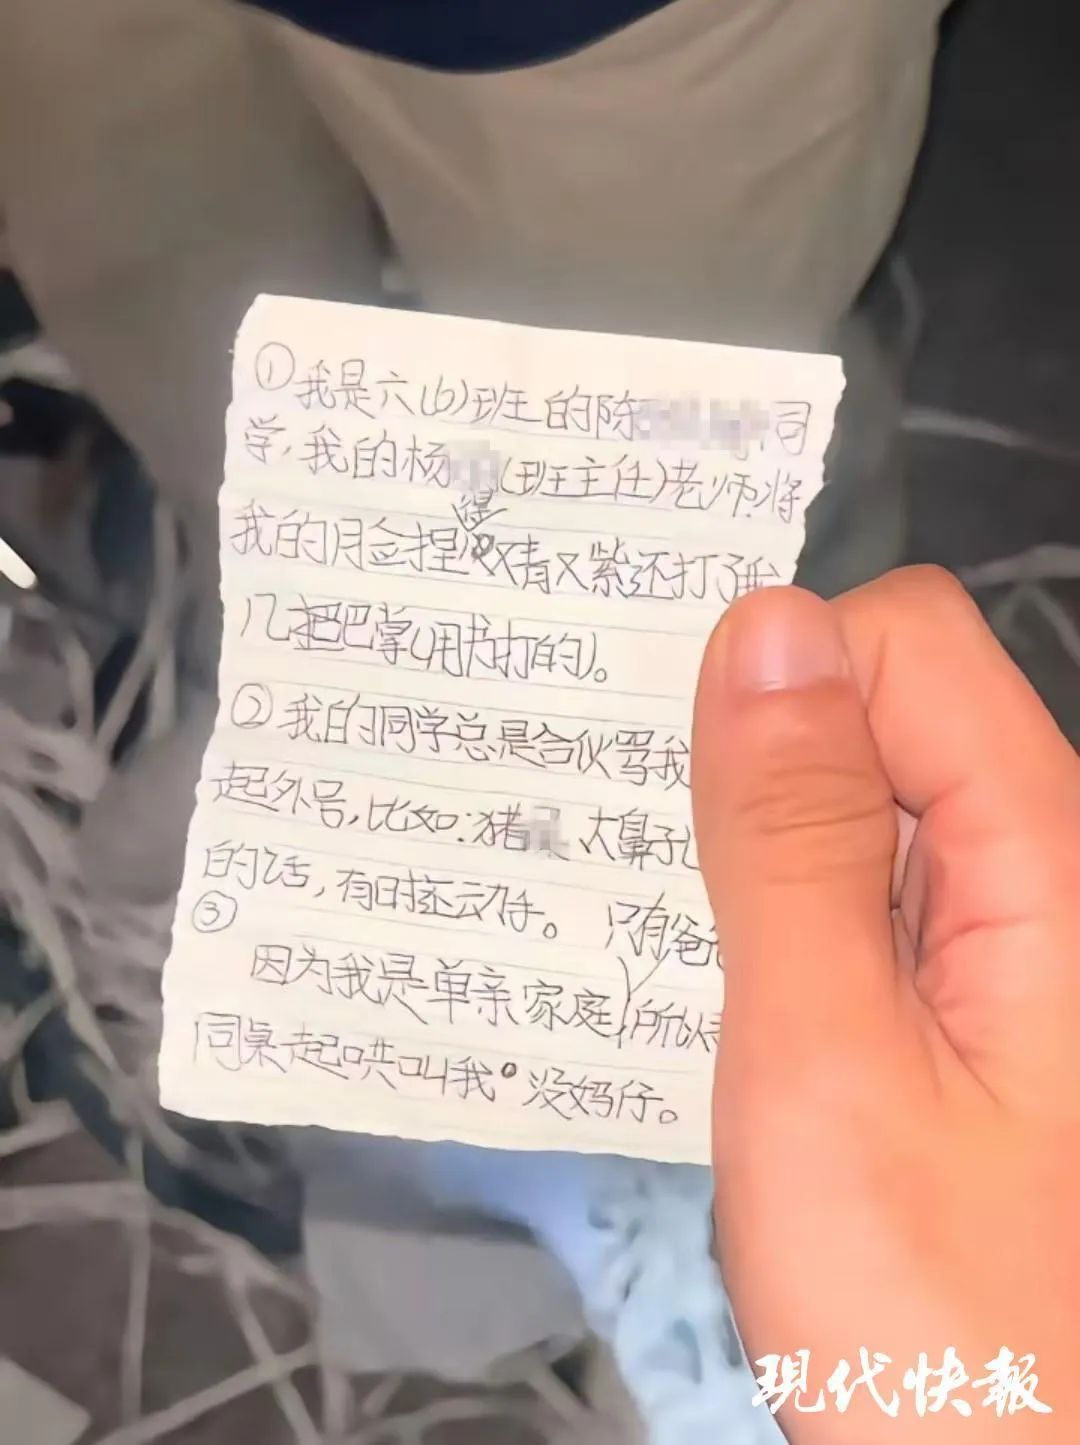 ①我是六(6)班的陈 同
学,我的杨 (班主任)老师将
我的脸捏得又青又紫还打了我
几把巴掌(用书打的)。
②我的同学总是合伙骂我
起外号,比如:猪 大鼻孔
的话,有时还动手。
③
只有爸爸
因为我是单亲家庭,所以
同桌起哄叫我。没妈仔。
现代快报